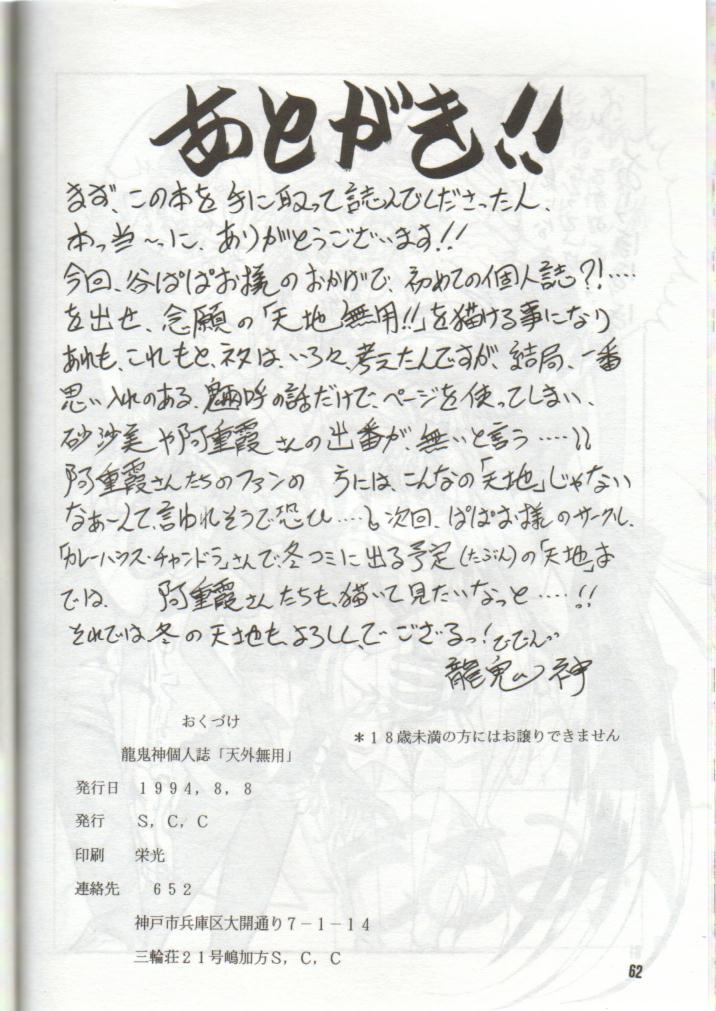 あとがき!!
まず、この本を手に取って読んでくださった人、
本っ当〜に、ありがとうございます!!
今回、谷ぱぱお様のおかげで、初めての個人誌?!‥‥
を出せ、念願の「天地無用!!」を描ける事になり
あれも、これもと、ネタは、いろ々、考えたんですが、結局、一番
思い入れのある、魎呼の話だけで、ページを使ってしまい、
砂沙美や阿重霞さんの出番が、無いと言う‥‥
阿重霞さんたちのファンの 方には、こんなの「天地」じゃない
なぁーんて、言われそうで恐ひ‥‥
次回、ぱぱお様のサークル、
「カレーハウス・チャンドラ」さんで、冬コミに出る予定(たぶん)の「天地」本
では、 阿重霞さんたちも、描いて見たいなっと‥‥!!
それでは、冬の天地も、よろしく、でござるっ!
龍鬼神
おくづけ
龍鬼神個人誌「天外無用」
*18歳未満の方にはお譲りできません
発行日 1994,8,8
発行 S,C,C
印刷 栄光
連絡先 652
神戸市兵庫区大開通り7-1-14
三輪荘21号嶋加方S,C,C
62